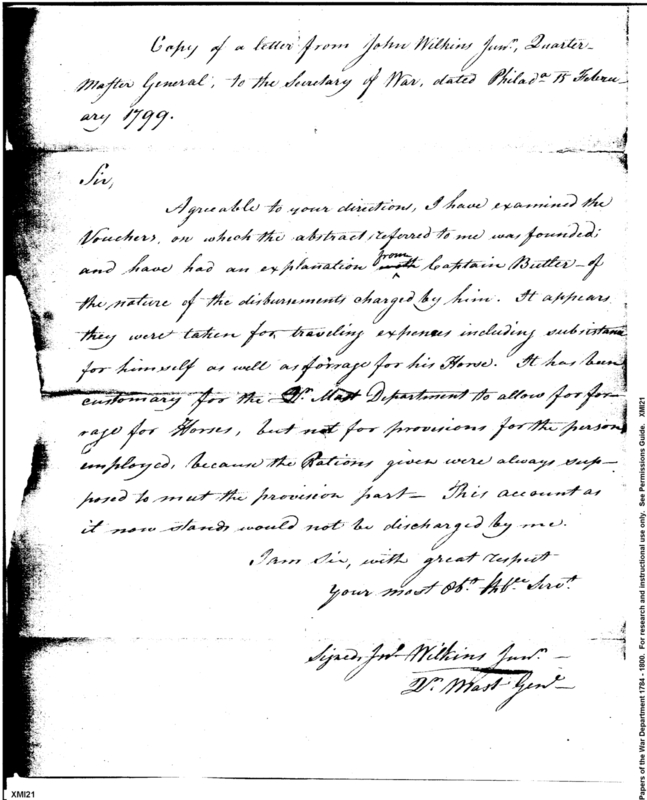 Copy of a letter from John Wilkins Junr., Quarter-
Master General, to the Secretary of War, dated Philada. 15 Febru-
ary 1799.
Sir,
Agreeable to your directions, I have examined the
Vouchers, on which the abstract referred to me was founded;
and have had an explanation from Captain Butler - of
the nature of the disbursements charged by him. It appears
they were taken for traveling expences including subsistance
for himself as well as forrage for his Horse. It has been
customary for the Qr. Mast Department to allow for for-
rage for Horses, but not for provisions for the person
employed, because the Rations given were always sup-
posed to meet the provision part - This account as
it now stands would not be discharged by me.
I am Sir, with great respect
your most Obt. Hble. Servt.
Signed, Jno. Wilkins Junr. -
Qr. Mast Genl -
XMI21
Papers of the War Department 1784 - 1800. For research and instructional use only. See Permissions Guide. XMI21